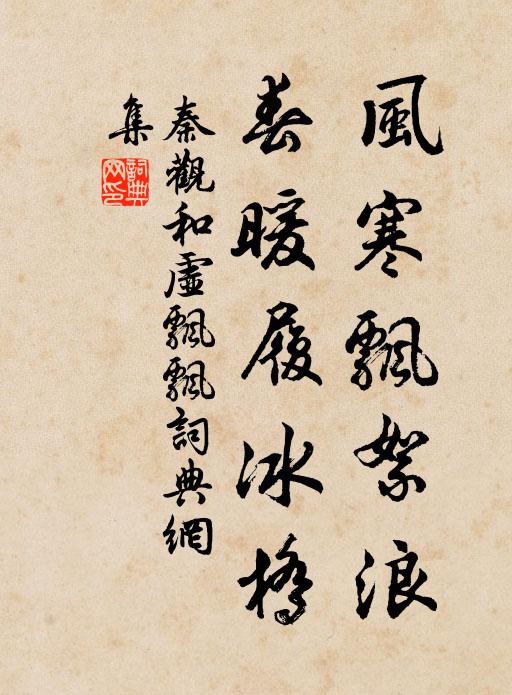 風寒飄絮浪
春暖履冰橋
秦觀和虛飄飄詞典網
集
詞典
網印